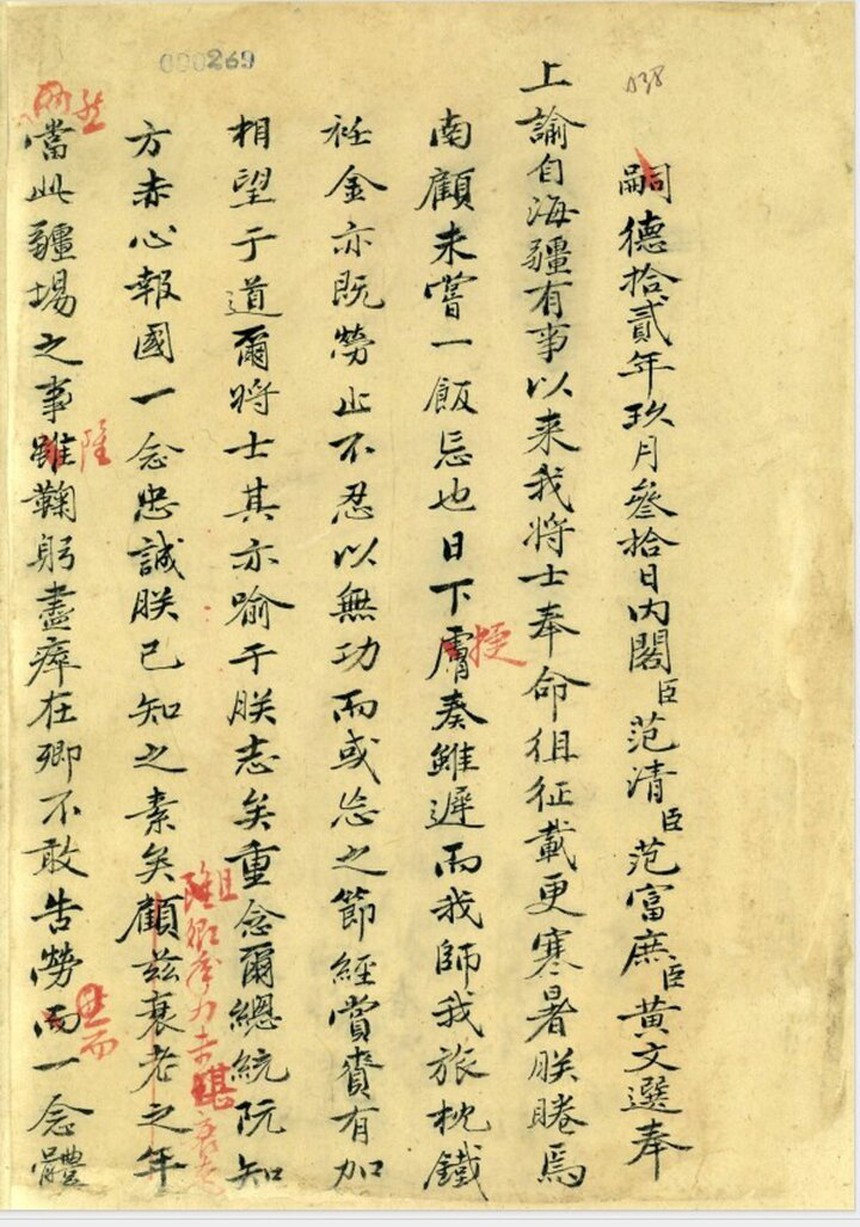 000269
038
嗣德拾貳年玖月叄拾日内閣臣范清臣范富庶臣黄文選奉
上諭自海疆有事以来我將士奉命徂征載更寒暑朕睠焉
南顧未嘗一飯忘也日下膚奏雖遲而我師我旅枕鐵
衽金亦既勞止不忍以無功而或忘之節經賞賚有加
相望于道爾將士其亦喻于朕志矣重念爾總統阮知
方赤心報國一念忠誠朕已知之素矣顧兹衰老之年
當此疆場之事雖鞠躬盡瘁在卿不敢告勞而一念體
捷
雖
卿
力
衰老
然
而